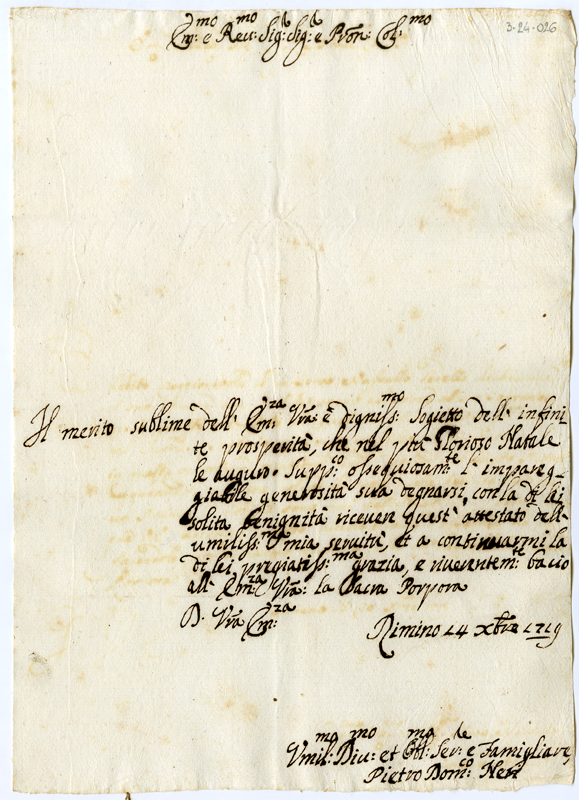 3-24-026
Em:mo e Reu:mo Sig:r Sig:r e Pron: Col:mo
Il merito sublime dell' Em:za Vra: è digniss:mo Sogietto dell' infini
te prosperità, che nel pnte Glorioso Natale
le auguro. Supp:co ossequiosam:te l' impareg-
giabile generosità sua degnarsi con la di lei
solita benignità riceuer quest' attestato dell'
umiliss:ma mia seruitù, et a continuarmi la
di lei pregiatiss:ma grazia, e riuerentem:te bacio
all' Em:za Vra: la Sacra Porpora
D. Vra Em:za
Rimino 14 xbre 1719
Vmil:mo Diu:mo et Obl:mo Ser:de e Famigliare
Pietro Dom:co Neri